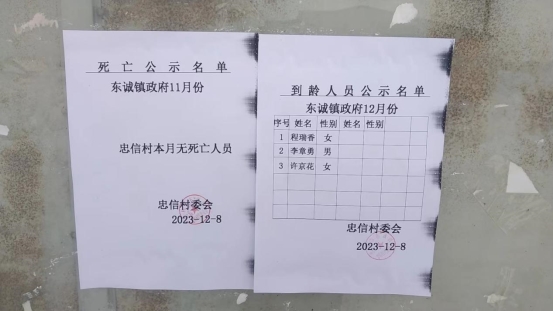 死亡公示名单
东诚镇政府11月份
忠信村本月无死亡人员
忠信村委会
2023-12-8
到龄人员公示名单
东诚镇政府12月份
序号 姓名 性别 姓名 性别
1 程瑞香 女
2 李章勇 男
3 许京花 女
忠信村委会
2023-12-8